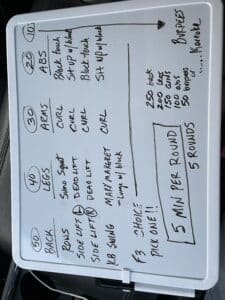 50 40 30 20 10
BACK LEGS ARMS ABS
ROWS Sumo Squat CURL Block touch
SIDE LIFT L DEAD LIFT CURL Sit up w/ block
SIDE LIFT R DEAD LIFT CURL Block touch
KB SWING MARY MARGRET CURL Sit up w/ block
- Lunge w/ block
F3 CHOICE
PICK ONE!!
250 back
200 legs
150 arms
100 abs
50 burpees
BURPEES
or
Karaoke
5 MIN PER ROUND
5 ROUNDS